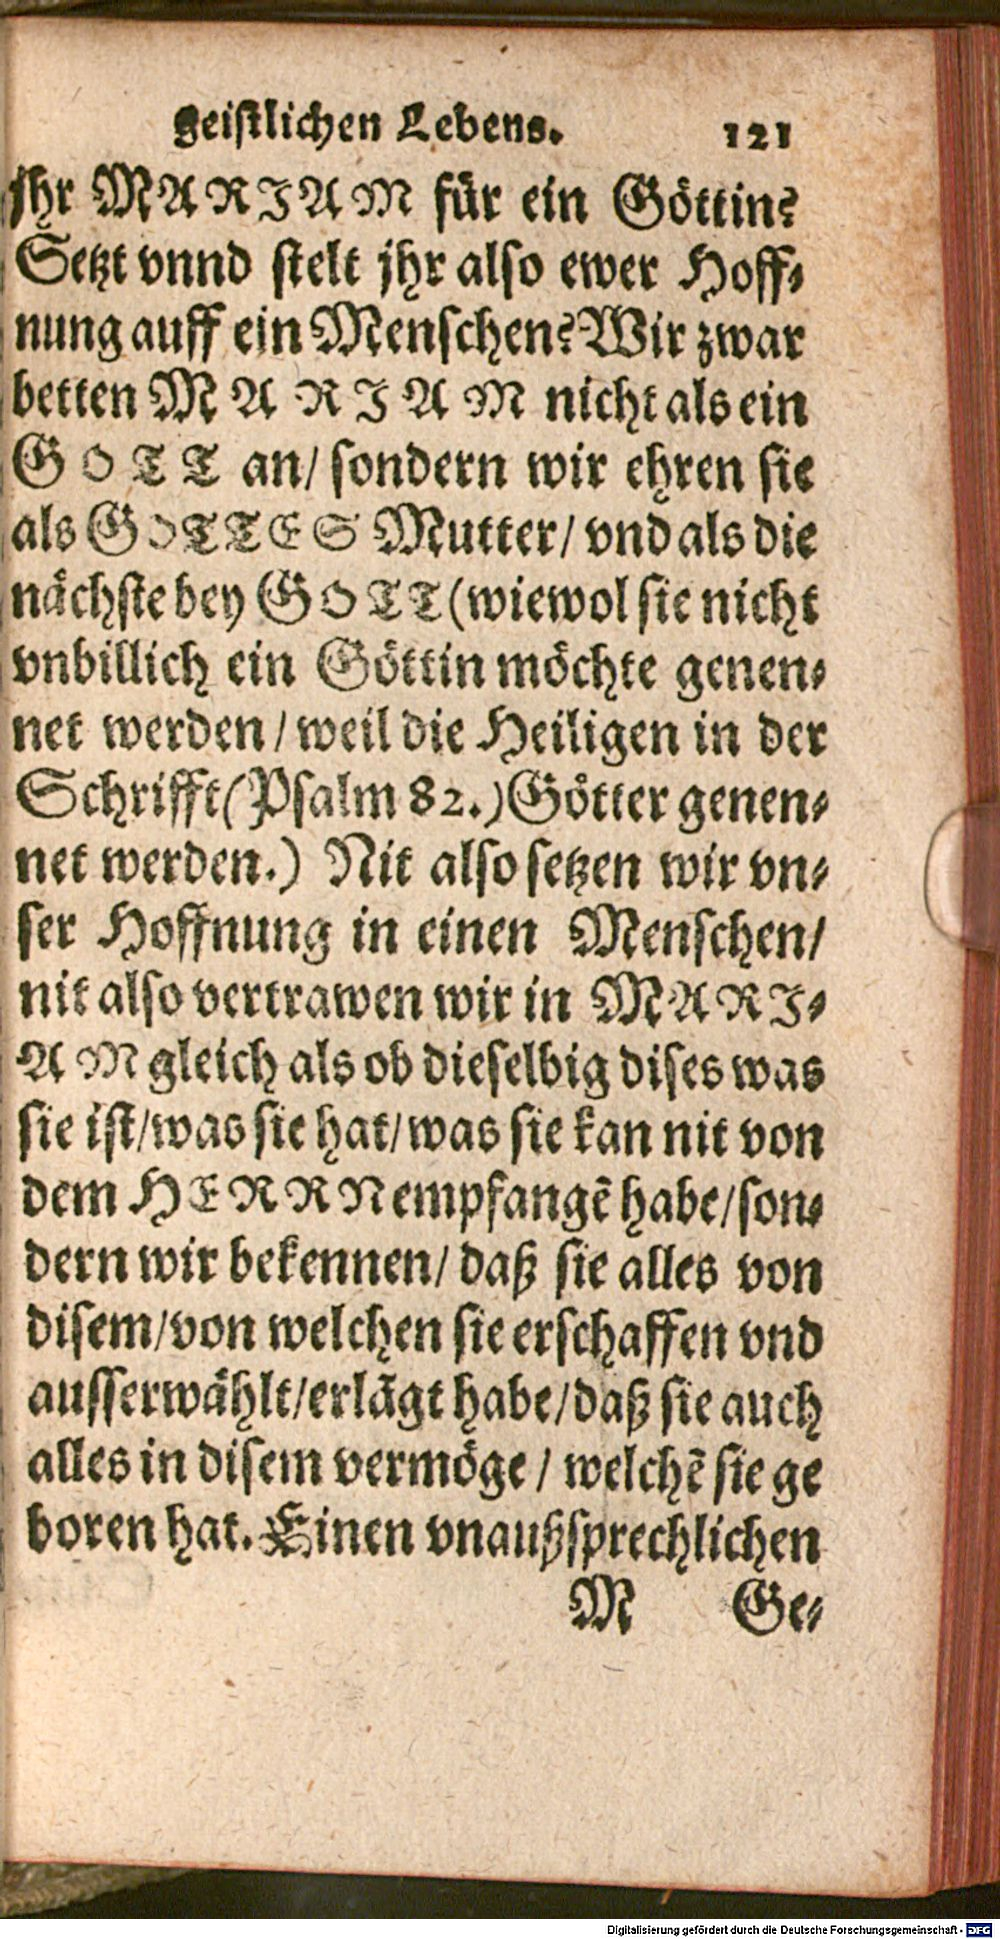 geistlichen Lebens. 121
jhr MARIAM für ein Göttin?
Setzt vnnd stelt jhr also ewer Hoff-
nung auff ein Menschen? Wir zwar
betten MARIAM nicht als ein
GOTT an/ sondern wir ehren sie
als GOTTES Mutter/ vnd als die
nächste bey GOTT (wiewol sie nicht
vnbillich ein Göttin möchte genen-
net werden/ weil die Heiligen in der
Schrifft (Psalm 82.) Götter genen-
net werden.) Nit also setzen wir vn-
ser Hoffnung in einen Menschen/
nit also vertrawen wir in MARI-
AM gleich als ob dieselbig dises was
sie ist/ was sie hat/ was sie kan nit von
dem HERRN empfangẽ habe/ son-
dern wir bekennen/ daß sie alles von
disem/ von welchen sie erschaffen vnd
ausserwählt/ erlägt habe/ daß sie auch
alles in disem vermöge / welchẽ sie ge
boren hat. Einen vnaußsprechlichen
M Ge-
Digitalisierung gefördert durch die Deutsche Forschungsgemeinschaft - DFG